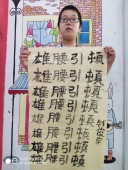 雄腰引頓
雄腰引頓
雄腰引頓
雄腰引頓
雄腰引頓
雄腰引頓
雄腰引頓
雄腰引頓